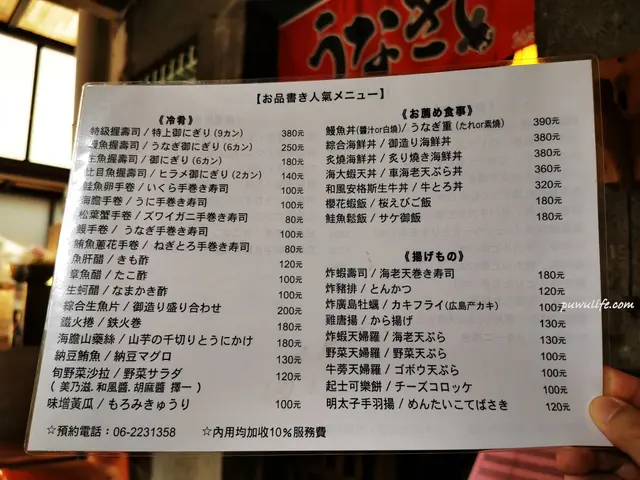 うなぎ
【お品書き人氣メニュー】
《冷肴》
特級握壽司 / 特上御にぎり (9カン) 380元
鰻魚握壽司 / うなぎ御にぎり (6カン) 250元
生魚握壽司 / 御にぎり (6カン) 180元
比目魚握壽司 / ヒラメ御にぎり (2カン) 140元
鮭魚卵手卷 / いくら手巻き寿司 100元
海膽手卷 / うに手巻き寿司 100元
松葉蟹手卷 / ズワイガニ手巻き寿司 80元
鰻手卷 / うなぎ手巻き寿司 100元
鮪魚蔥花手卷 / ねぎとろ手巻き寿司 80元
魚肝醋 / きも酢 120元
章魚醋 / たこ酢 100元
生蚵醋 / なまかき酢 100元
綜合生魚片 / 御造り盛り合わせ 200元
鐵火捲 / 鉄火巻 180元
海膽山藥絲 / 山芋の千切りとうにかけ 180元
納豆鮪魚 / 納豆マグロ 130元
旬野菜沙拉 / 野菜サラダ 120元
( 美乃滋. 和風醬. 胡麻醬 擇一 )
味增黃瓜 / もろみきゅうり 100元
《お薦め食事》
鰻魚丼(醬汁or白燒) / うなぎ重 (たれor素焼) 390元
綜合海鮮丼 / 御造り海鮮丼 380元
炙燒海鮮丼 / 炙り焼き海鮮丼 380元
海大蝦天丼 / 車海老天ぷら丼 360元
和風安格斯生牛丼 / 牛とろ丼 320元
櫻花蝦飯 / 桜えびご飯 180元
鮭魚鬆飯 / サケ御飯 180元
《揚げもの》
炸蝦壽司 / 海老天巻き寿司 180元
炸豬排 / とんかつ 120元
炸廣島牡蠣 / カキフライ(広島产カキ) 100元
雞唐揚 / から揚げ 130元
炸蝦天婦羅 / 海老天ぷら 130元
野菜天婦羅 / 野菜天ぷら 100元
牛蒡天婦羅 / ゴボウ天ぷら 100元
起士可樂餅 / チーズコロッケ 100元
明太子手羽揚 / めんたいこてばさき 120元
☆預約電話：06-2231358 ☆內用均加收10%服務費
puwulife.com